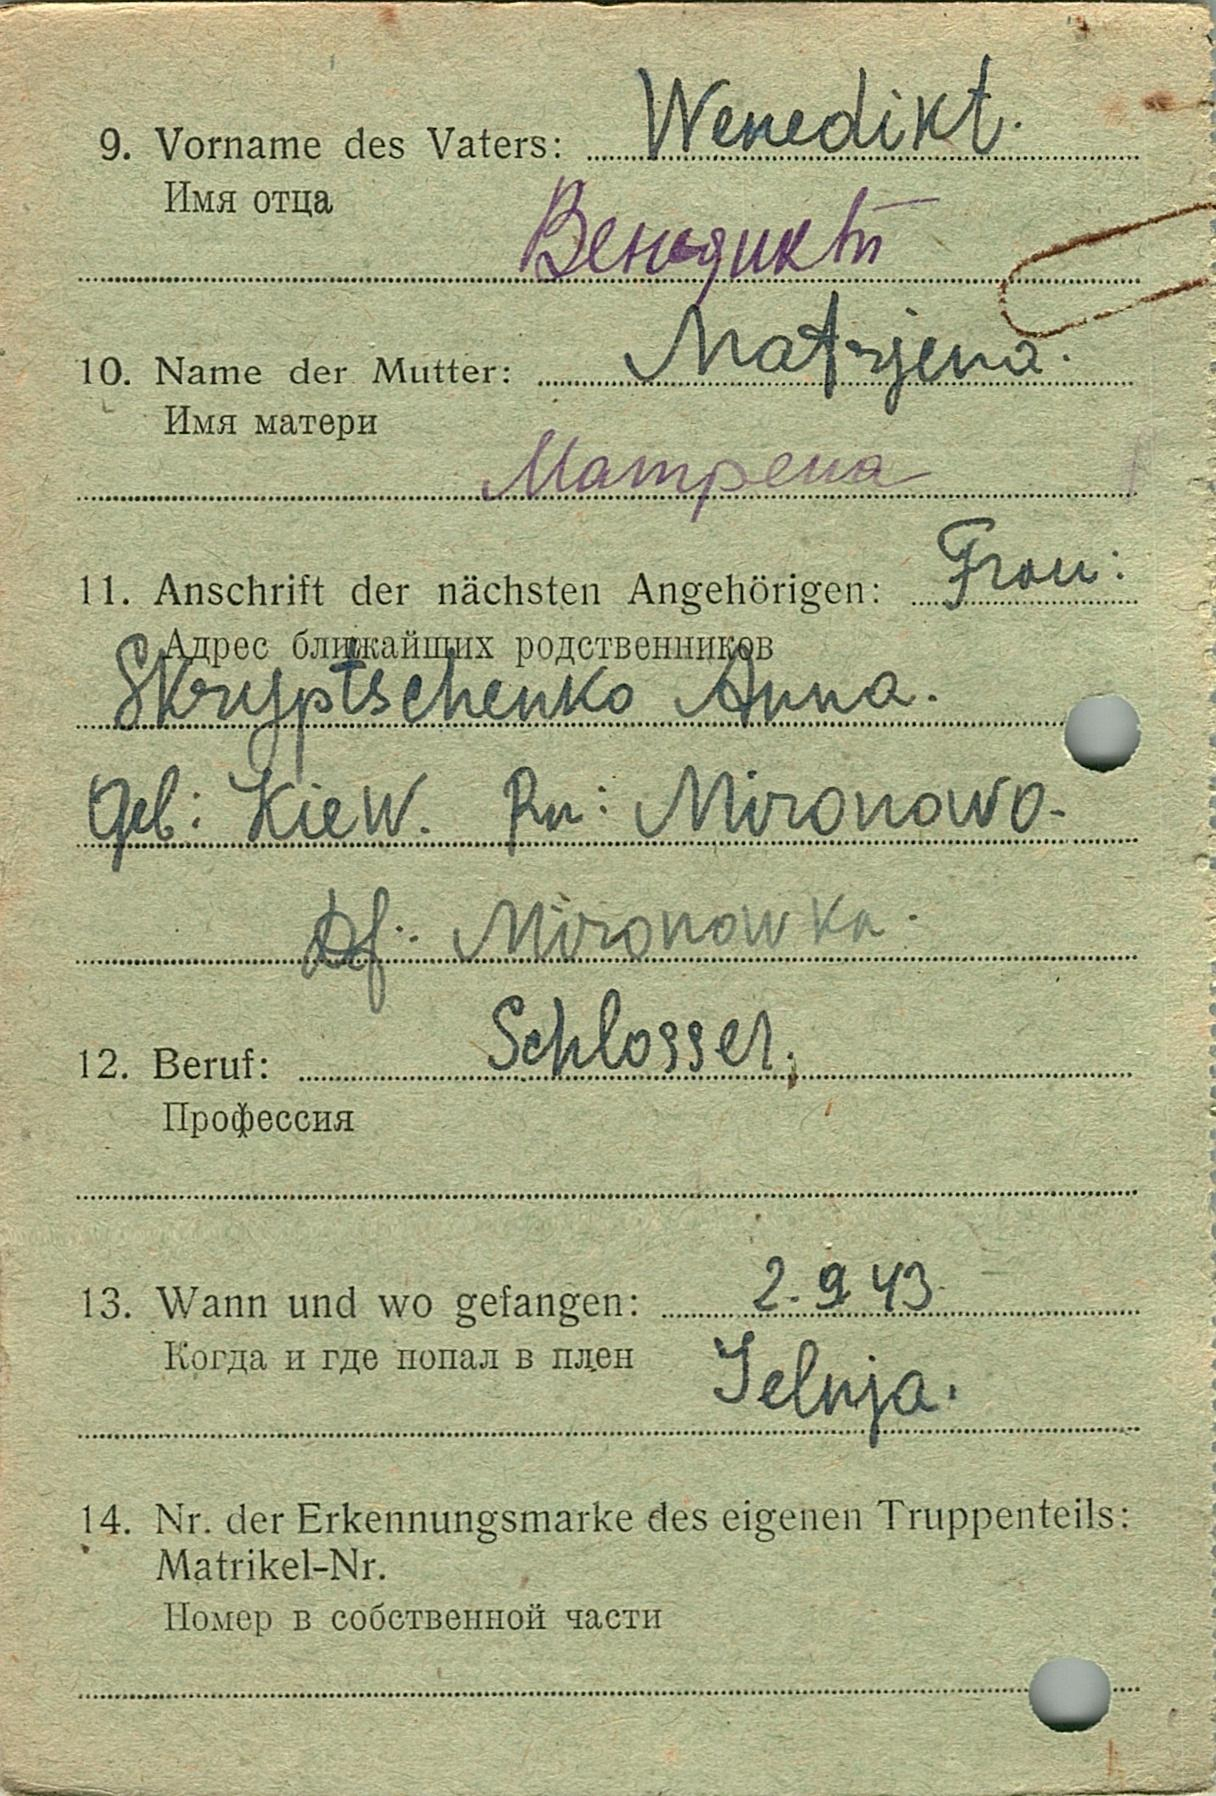 9. Vorname des Vaters: Wenedikt.
Имя отца
Венедикт
10. Name der Mutter: Matrjena.
Имя матери
Матрена
11. Anschrift der nächsten Angehörigen: Frau:
Адрес ближайших родственников
Skryptschenko Anna.
Geb: Kiew. Rn: Mironowo-
Df: Mironowka.
12. Beruf: Schlosser.
Профессия
13. Wann und wo gefangen: 2.9.43.
Когда и где попал в плен
Jelnja.
14. Nr. der Erkennungsmarke des eigenen Truppenteils:
Matrikel-Nr.
Номер в собственной части